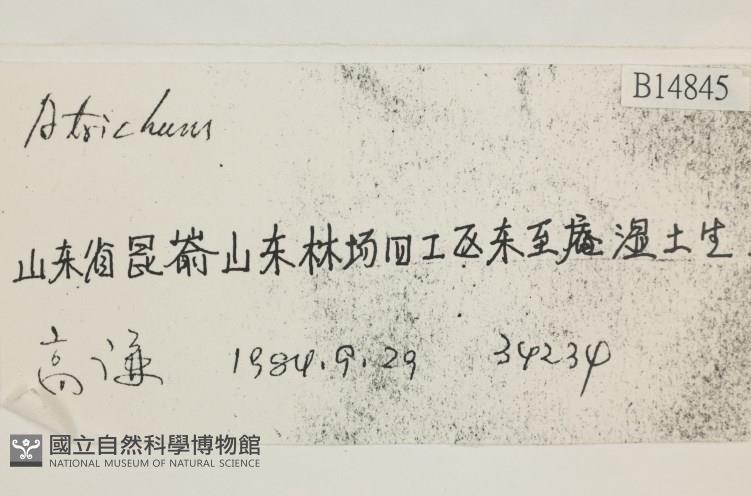 B14845
Atrichum
山东省昆嵛山东林场四工区东至庵 湿土生
高谦 1984.9.29 34234
國立自然科學博物館
NATIONAL MUSEUM OF NATURAL SCIENCE